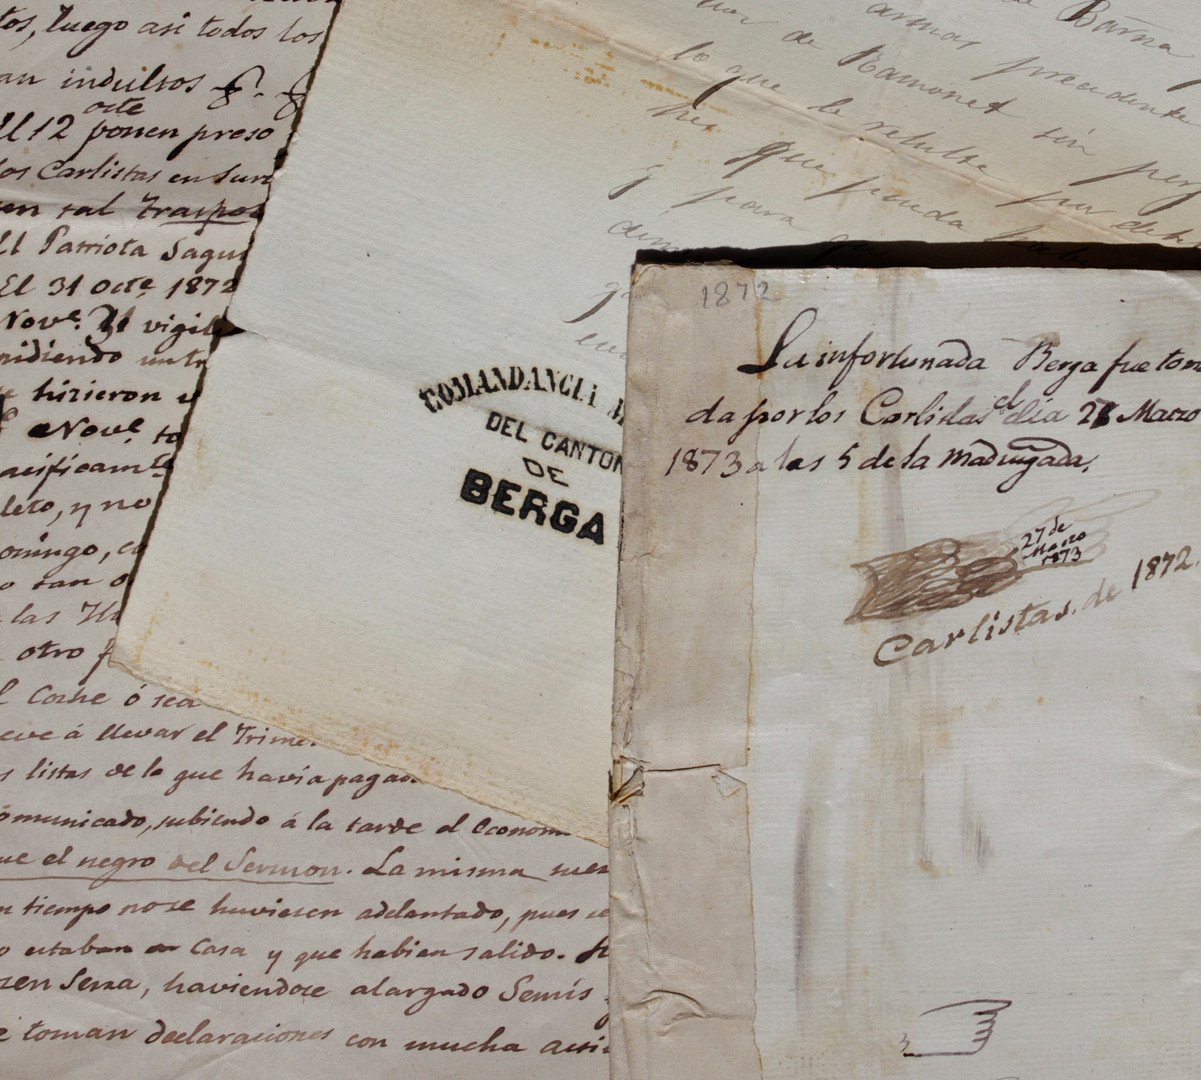 tos, luego asi todos los
an indultos
octe
El 12 ponen preso
los Carlistas en
en tal
El Patriota Sagun
El 31 octe. 1872
Nove. 21 vigil
midiendo un tr
hizieron
Nove. to
acificamte
leto, y no
omingo, co
o tan o
las
otro f
Coche ó sea
eve á llevar el Trimes
s listas de lo que havia pagad
omunicado, subiendo á la tarde el Econom
ue el negro del Sermon. La misma suer
n tiempo no se huviesen adelantado, pues
o estaban en Casa y que habian salido.
Serra, haviendose alargado Semís
e toman declaraciones con mucha acti
de Barna
armas precedente
de Ramonet sin perj
lo que le resulte por
que pueda
y para
COMANDANCIA M
DEL CANTON
DE
BERGA
1872
La infortunada Berga fue toma
da por los Carlistas el dia 27 Marzo
1873 a las 5 de la Madrugada.
27 de
Marzo
1873
Carlistas de 1872.